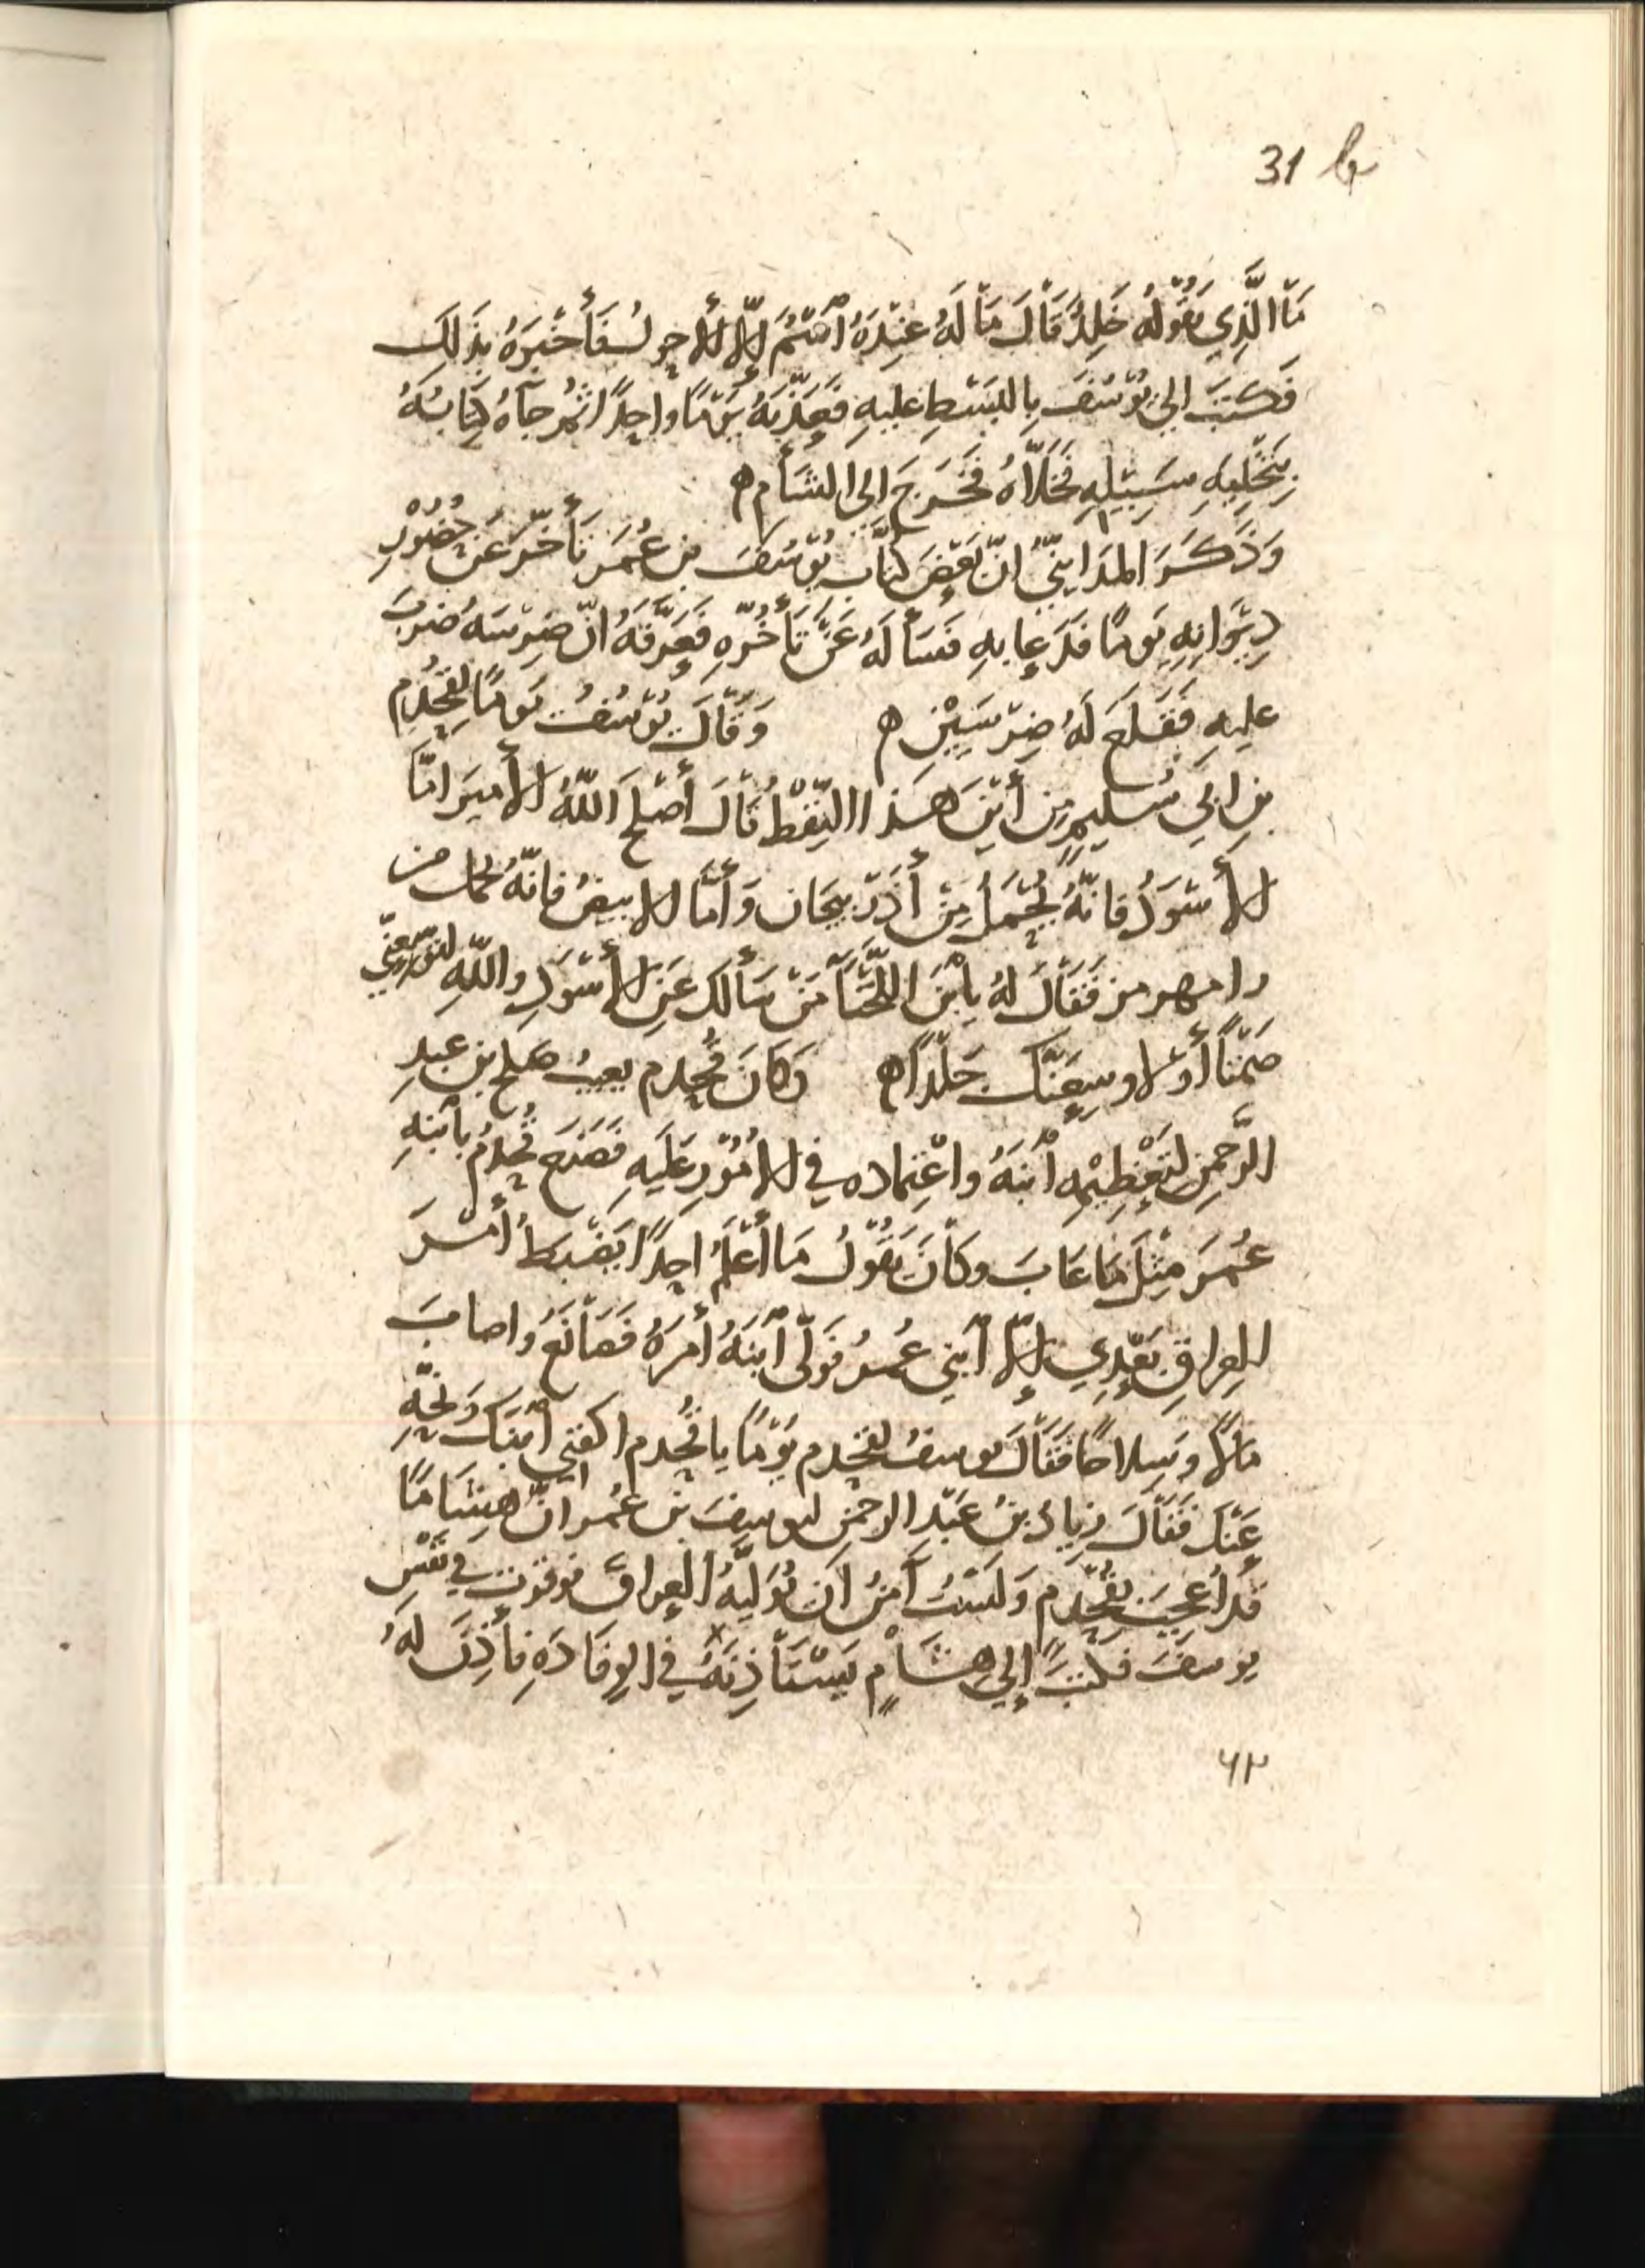 31 b
مَا الَّذِي يَقُوْلُهُ خَلِدٌ قَالَ مَا لَهُ عِنْدَهُ ٱسْمٌ إلّا الأحول فَأَخْبَرَهُ بِذَلِكَ
فَكَتَبَ الي يُوْسُفَ بِالبَسْطِ عليهِ فَعَذَّبَهُ يَوْمًا واحِدًا ثُمَّ جَآهُ كِتَابُهُ
بِتَخْلِيَهِ سَبِيْلِهِ فَخَلَّاهُ فَخَرَجَ اِلى الشَأْم ه
وَذَكَرَ المدَايِنِيُّ انّ بَعْضَ كُتَّابِ يُوْسُفَ بن عُمَرَ تَأَخَّرَ عَن حُضُوْرِ
دِيْوَانِهِ يَومًا فَدَعا بهِ فَسَأَلَهُ عَنْ تَأَخُّرِهِ فَعَرَّفَهُ انّ ضِرْسَهُ ضَرَبَ
عليهِ فَقَلَعَ لَهُ ضِرْسَيْنِ ه وَقَالَ يُوْسُفُ يَومًا لِقَحْذَمِ
بنِ ابي سُلَيمٍ مِن أَيْنَ هَذا النِّفْطُ قَالَ أَصْلَحَ اللّهُ الأميرَ امّا
الأَسْوَدُ فانّهُ يُحْمَلُ مِنْ أَذَرْبيجَان وَأمّا الابيضُ فانّهُ يُحمَل من
رامهرمز فَقَالَ لَهُ يا بْنَ اللَّخْنَآ مَنْ سَألكَ عَنِ الأَسْوَدِ واللّهِ
ضِمْنًا أَوْ لاوسِعَنَّكَ جَلْدًا ه وَكَانَ قَحْذَم يعيبُ صلح بن عبدِ
الرَّحمنِ لِتَعْظِيْمِهِ ٱبْنَهُ واعْتِماده في الامُوْرِ عَلَيهِ فَصَنَعَ قَحْذَمُ بٱبْنِهِ
عُمَرَ مِثْلَ مَا عَابَ وكَانَ يَقُوْلُ مَا أَعْلَمُ احَدًا يَضْبِطُ أَمْرَ
العِراقِ بَعْدِي إلّا ٱبْنِي عُمَرُ فَوَلّى ٱبْنَهُ أَمرَهُ فَصَانَعَ وَاصابَ
مَالاً وَسِلاحًا فَقَالَ يوسفُ لقحذم يَوْمًا يا قَحْذَم اكفني ٱبْنَكَ وَنَحِّهِ
عَنْكَ فَقَالَ زِيادُ بنُ عَبْدِ الرحمنِ ليوسِفَ بْنِ عُمر انّ هِشَامًا
قَد اُعجِبَ بقَحْذَم وَلَسْتُ آمَنُ اَن يُوَلِّيَهُ العِراق فوقرت في نَفْسِ
يوسفَ فكَتَبَ إلي هشَامٍ يَسْتَأذِنُهُ في الوِفَادَهِ فأَذِنَ لَهُ
٦٢